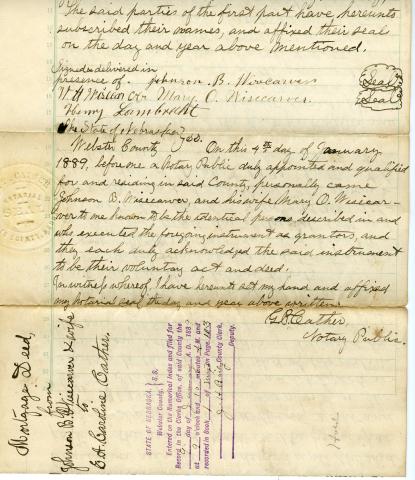 The said parties of the first part have, hereunto
subscribed their names, and affixed their seal
on the day and year above mentioned.
Signed & delivered in
presence of
Johnson B. Wisecarver
Seal
Mary O. Wisecarver
Seal
Henry Lambrecht
The State of Nebraska
Webster County } ss. On this 4th day of January
1889, before me a Notary Public duly appointed and qualified
for and residing in said County, personally came
Johnson B. Wisecarver, and his wife Mary O. Wisecar-
ver to me known to be the identical persons described in and
who executed the foregoing instrument as grantors, and
they each duly acknowledged the said instrument
to be their voluntary act and deed.
In witness whereof, I have hereunto set my hand and affixed
my notarial seal the day and year above written.
Notary Public
Mortgage Deed,
from
Johnson B. Wisecarver & wife
to
E. A. Caroline Cather.
STATE OF NEBRASKA } S.S.
Webster County,
Entered on the Numerical Index and filed for
Record in the Clerks Office, of said County the
day of January A. D. 188
at o'clock and minutes M. and
recorded in Book of Page 183
County Clerk,
Deputy.